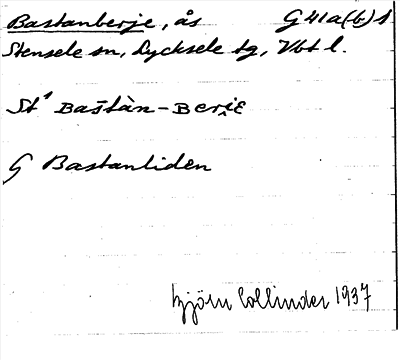 Bastanberje, ås G 41a(b)1
Stensele sn, Lycksele tg, Vbt l.
St¹ Baštàn-Berjɛ
G Bastanliden
Björn Collinder 1937